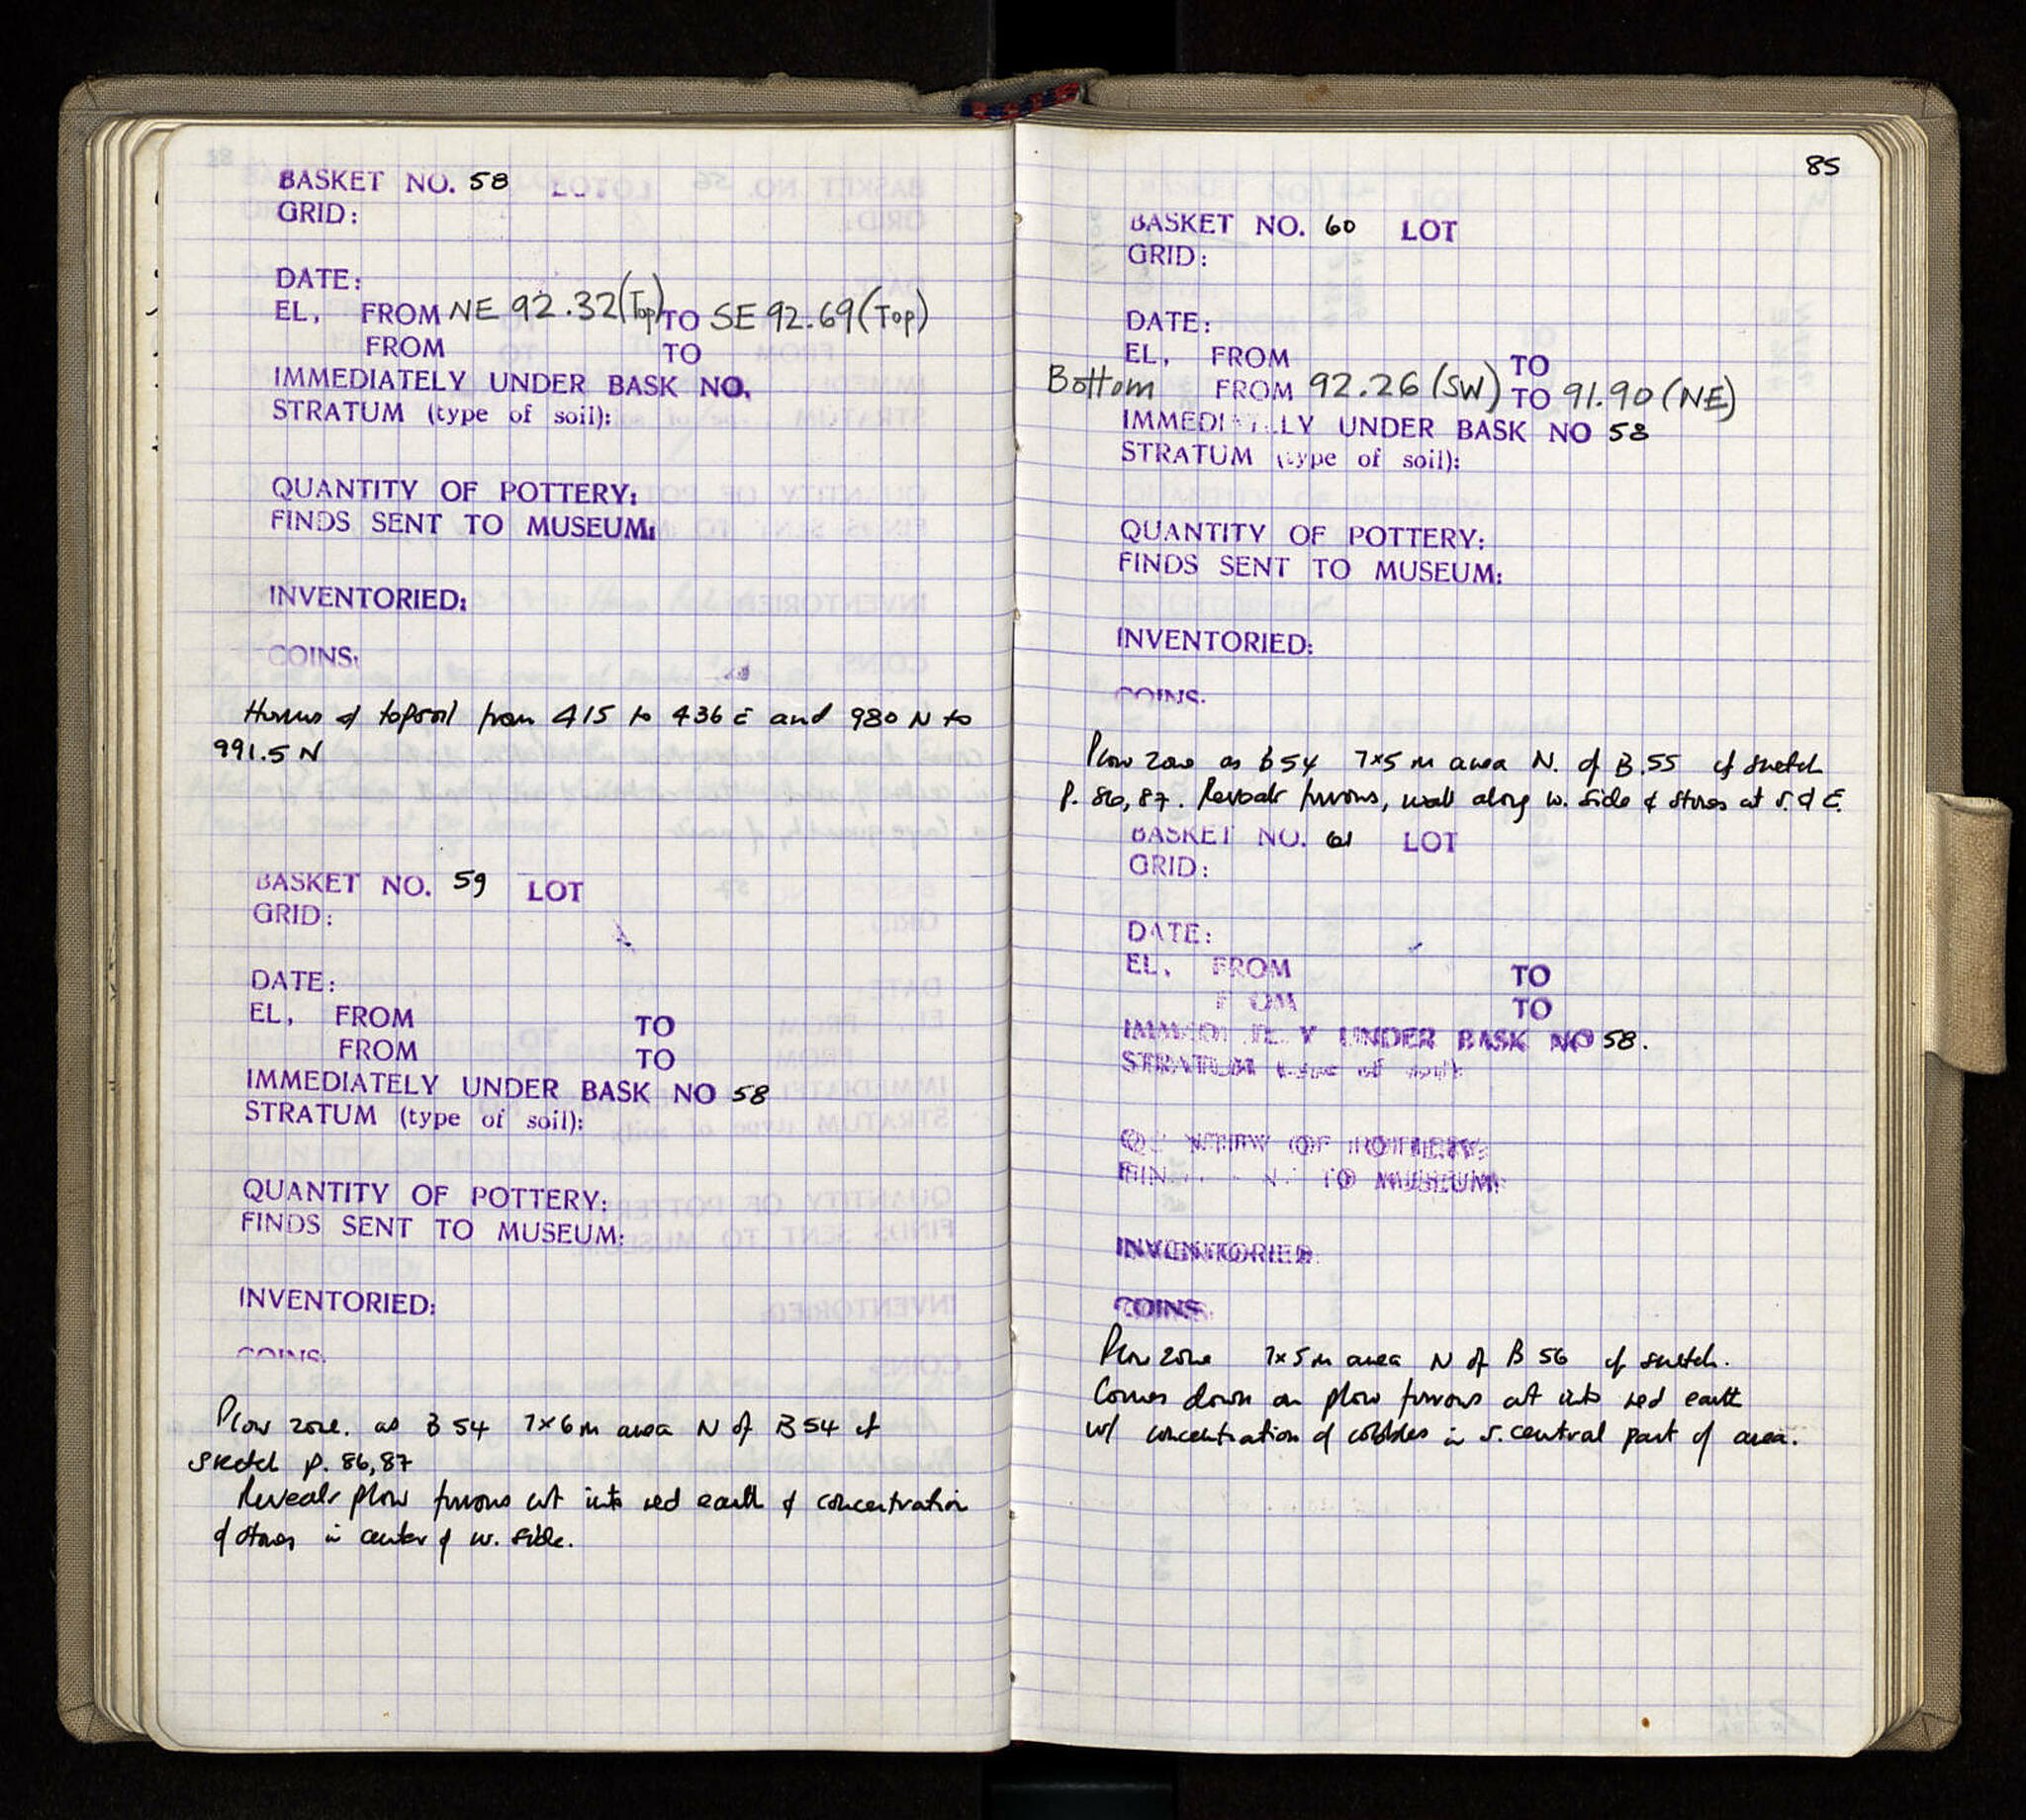 BASKET NO. 58 LOT
GRID:
DATE:
EL, FROM NE 92.32 (Top) TO SE 92.69 (Top)
FROM TO
IMMEDIATELY UNDER BASK NO.
STRATUM (type of soil):
QUANTITY OF POTTERY:
FINDS SENT TO MUSEUM:
INVENTORIED:
COINS:
Humus & topsoil from 415 to 436 E and 980 N to
991.5 N
BASKET NO. 59 LOT
GRID:
DATE:
EL, FROM TO
FROM TO
IMMEDIATELY UNDER BASK NO 58
STRATUM (type of soil):
QUANTITY OF POTTERY:
FINDS SENT TO MUSEUM:
INVENTORIED:
COINS.
Plow zone. as B 54 7x6 m area N of B 54 cf
sketch p. 86,87
Reveals plow furrows cut into red earth & concentration
of stones in center of w. side.
85
BASKET NO. 60 LOT
GRID:
DATE:
EL, FROM TO
Bottom FROM 92.26 (SW) TO 91.90 (NE)
IMMEDIATELY UNDER BASK NO 58
STRATUM (type of soil):
QUANTITY OF POTTERY:
FINDS SENT TO MUSEUM:
INVENTORIED:
COINS.
Plow zone as B 54 7x5 m area N. of B.55 cf sketch
p. 86,87. Reveals furrows, wall along w. side & stones at S. & E.
BASKET NO. 61 LOT
GRID:
DATE:
EL, FROM TO
FROM TO
IMMEDIATELY UNDER BASK NO 58.
STRATUM (type of soil):
QUANTITY OF POTTERY:
FINDS SENT TO MUSEUM:
INVENTORIED:
COINS.
Plow zone 7x5 m area N of B 56 cf sketch.
Comes down on plow furrows cut into red earth
w/ concentration of cobbles in s. central part of area.